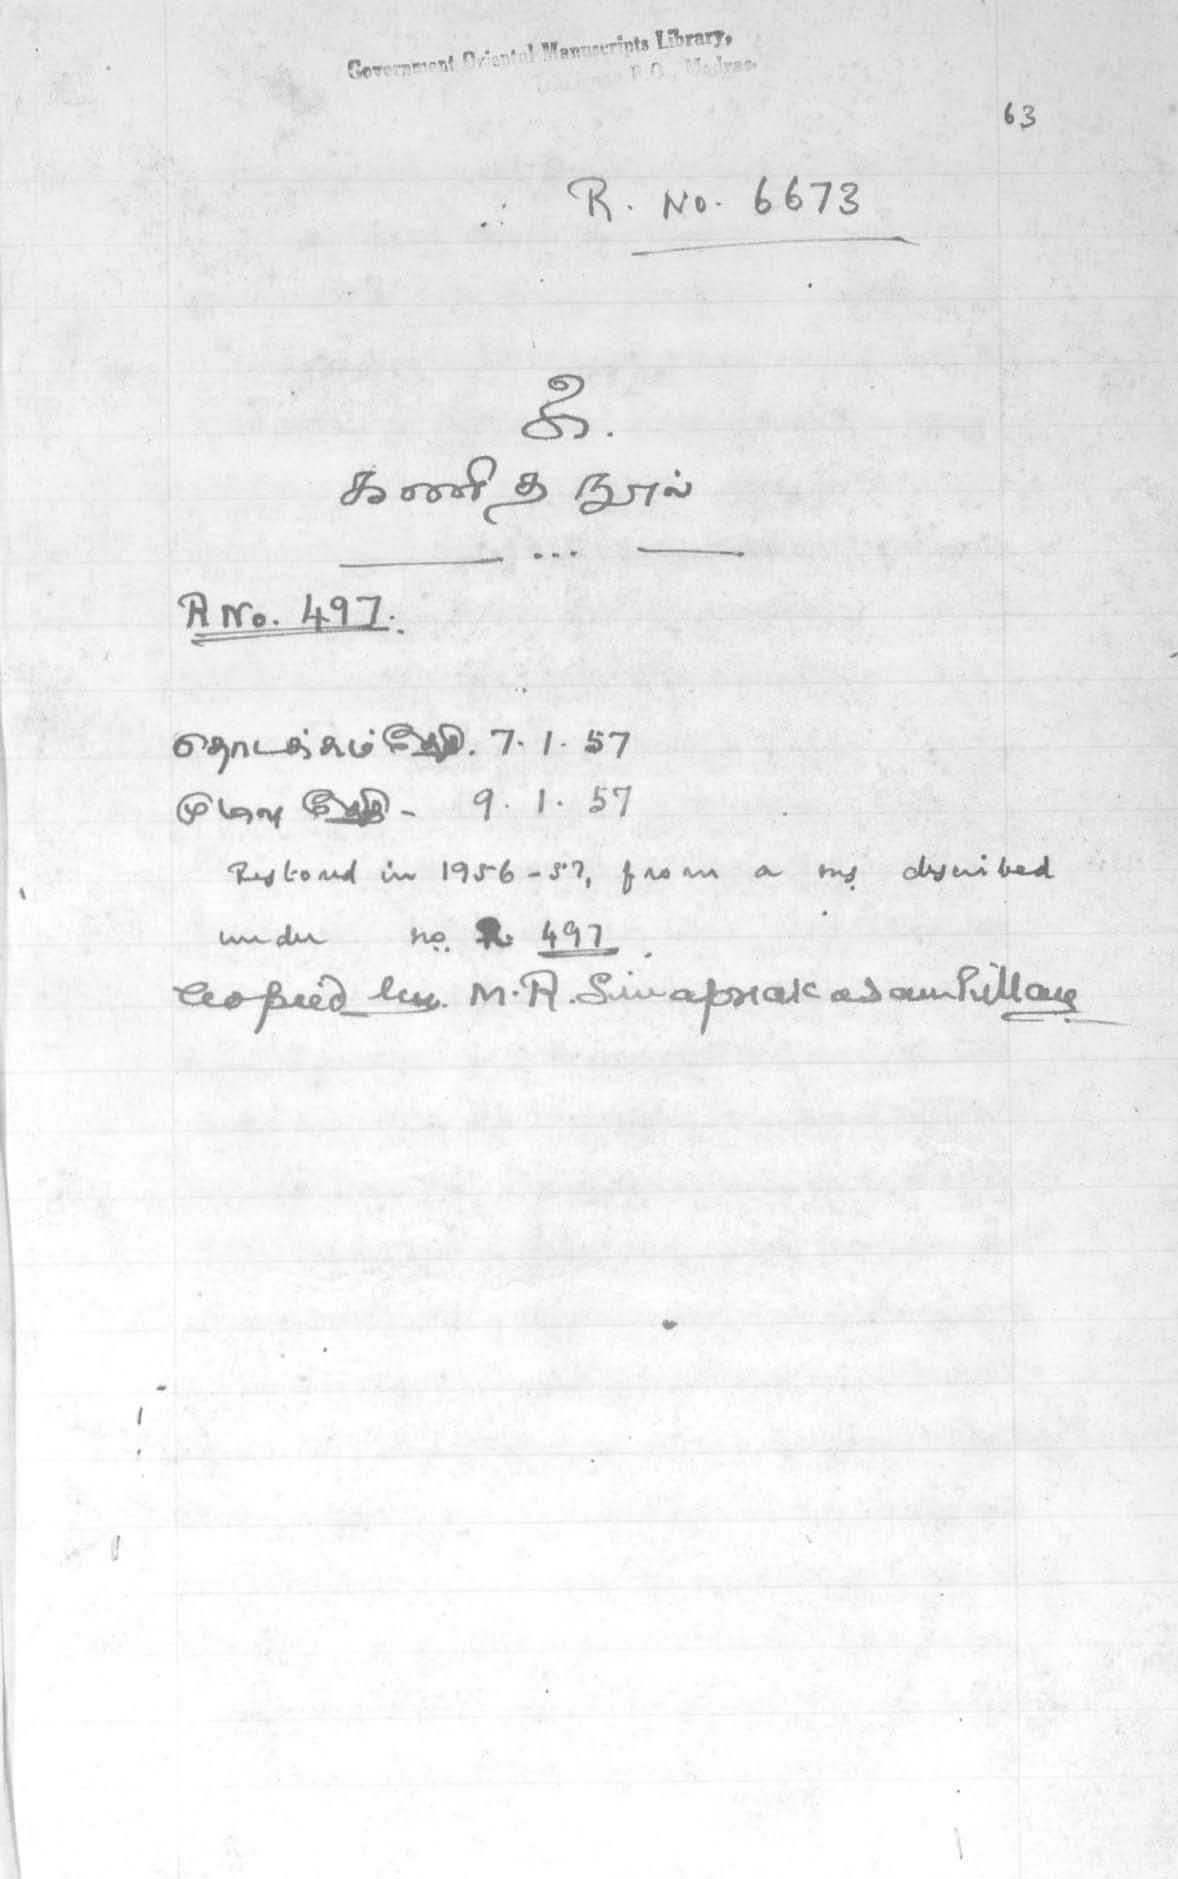 Government Oriental Manuscripts Library,
P.O., Madras.
63
R. No. 6673
கணித நூல்
R No. 497.
தொடக்கம் தேதி. 7. 1. 57
முடிவு தேதி - 9. 1. 57
Restored in 1956-57, from a ms described
under no. R 497.
Copied by. M.R. Sivaprakasam Pillay